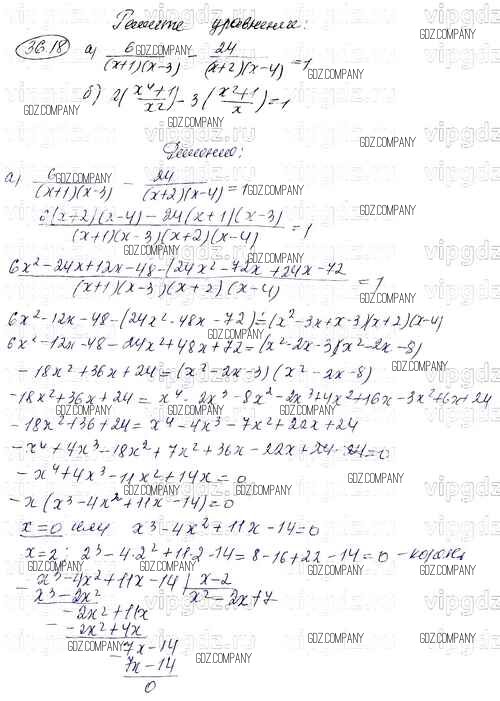 Решите уравнения:
36.18 а) 6/((x+1)(x-3)) - 24/((x+2)(x-4)) = 1
б) 2((x⁴+1)/x²) - 3((x²+1)/x) = 1
Решение:
а) 6/((x+1)(x-3)) - 24/((x+2)(x-4)) = 1
(6(x+2)(x-4) - 24(x+1)(x-3))/((x+1)(x-3)(x+2)(x-4)) = 1
(6x²-24x+12x-48-(24x²-72x+24x-72)/((x+1)(x-3)(x+2)(x-4)) = 1
6x²-12x-48-(24x²-48x-72) = (x²-3x+x-3)(x+2)(x-4)
6x²-12x-48-24x²+48x+72 = (x²-2x-3)(x²-2x-8)
-18x²+36x+24 = (x²-2x-3)(x²-2x-8)
-18x²+36x+24 = x⁴-2x³-8x²-2x³+4x²+16x-3x²+6x+24
-18x²+36+24 = x⁴-4x³-7x²+22x+24
-x⁴+4x³-18x²+7x²+36x-22x+24-24=0
-x⁴+4x³-11x²+14x=0
-x(x³-4x²+11x-14)=0
x=0 или x³-4x²+11x-14=0
x=2: 2³-4·2²+11·2-14=8-16+22-14=0 - корень
- x³-4x²+11x-14 | x-2
x³-2x² x²-2x+7
-2x²+11x
- -2x²+4x
- 7x-14
7x-14
0
GDZ.COMPANY
vipgdz.ru